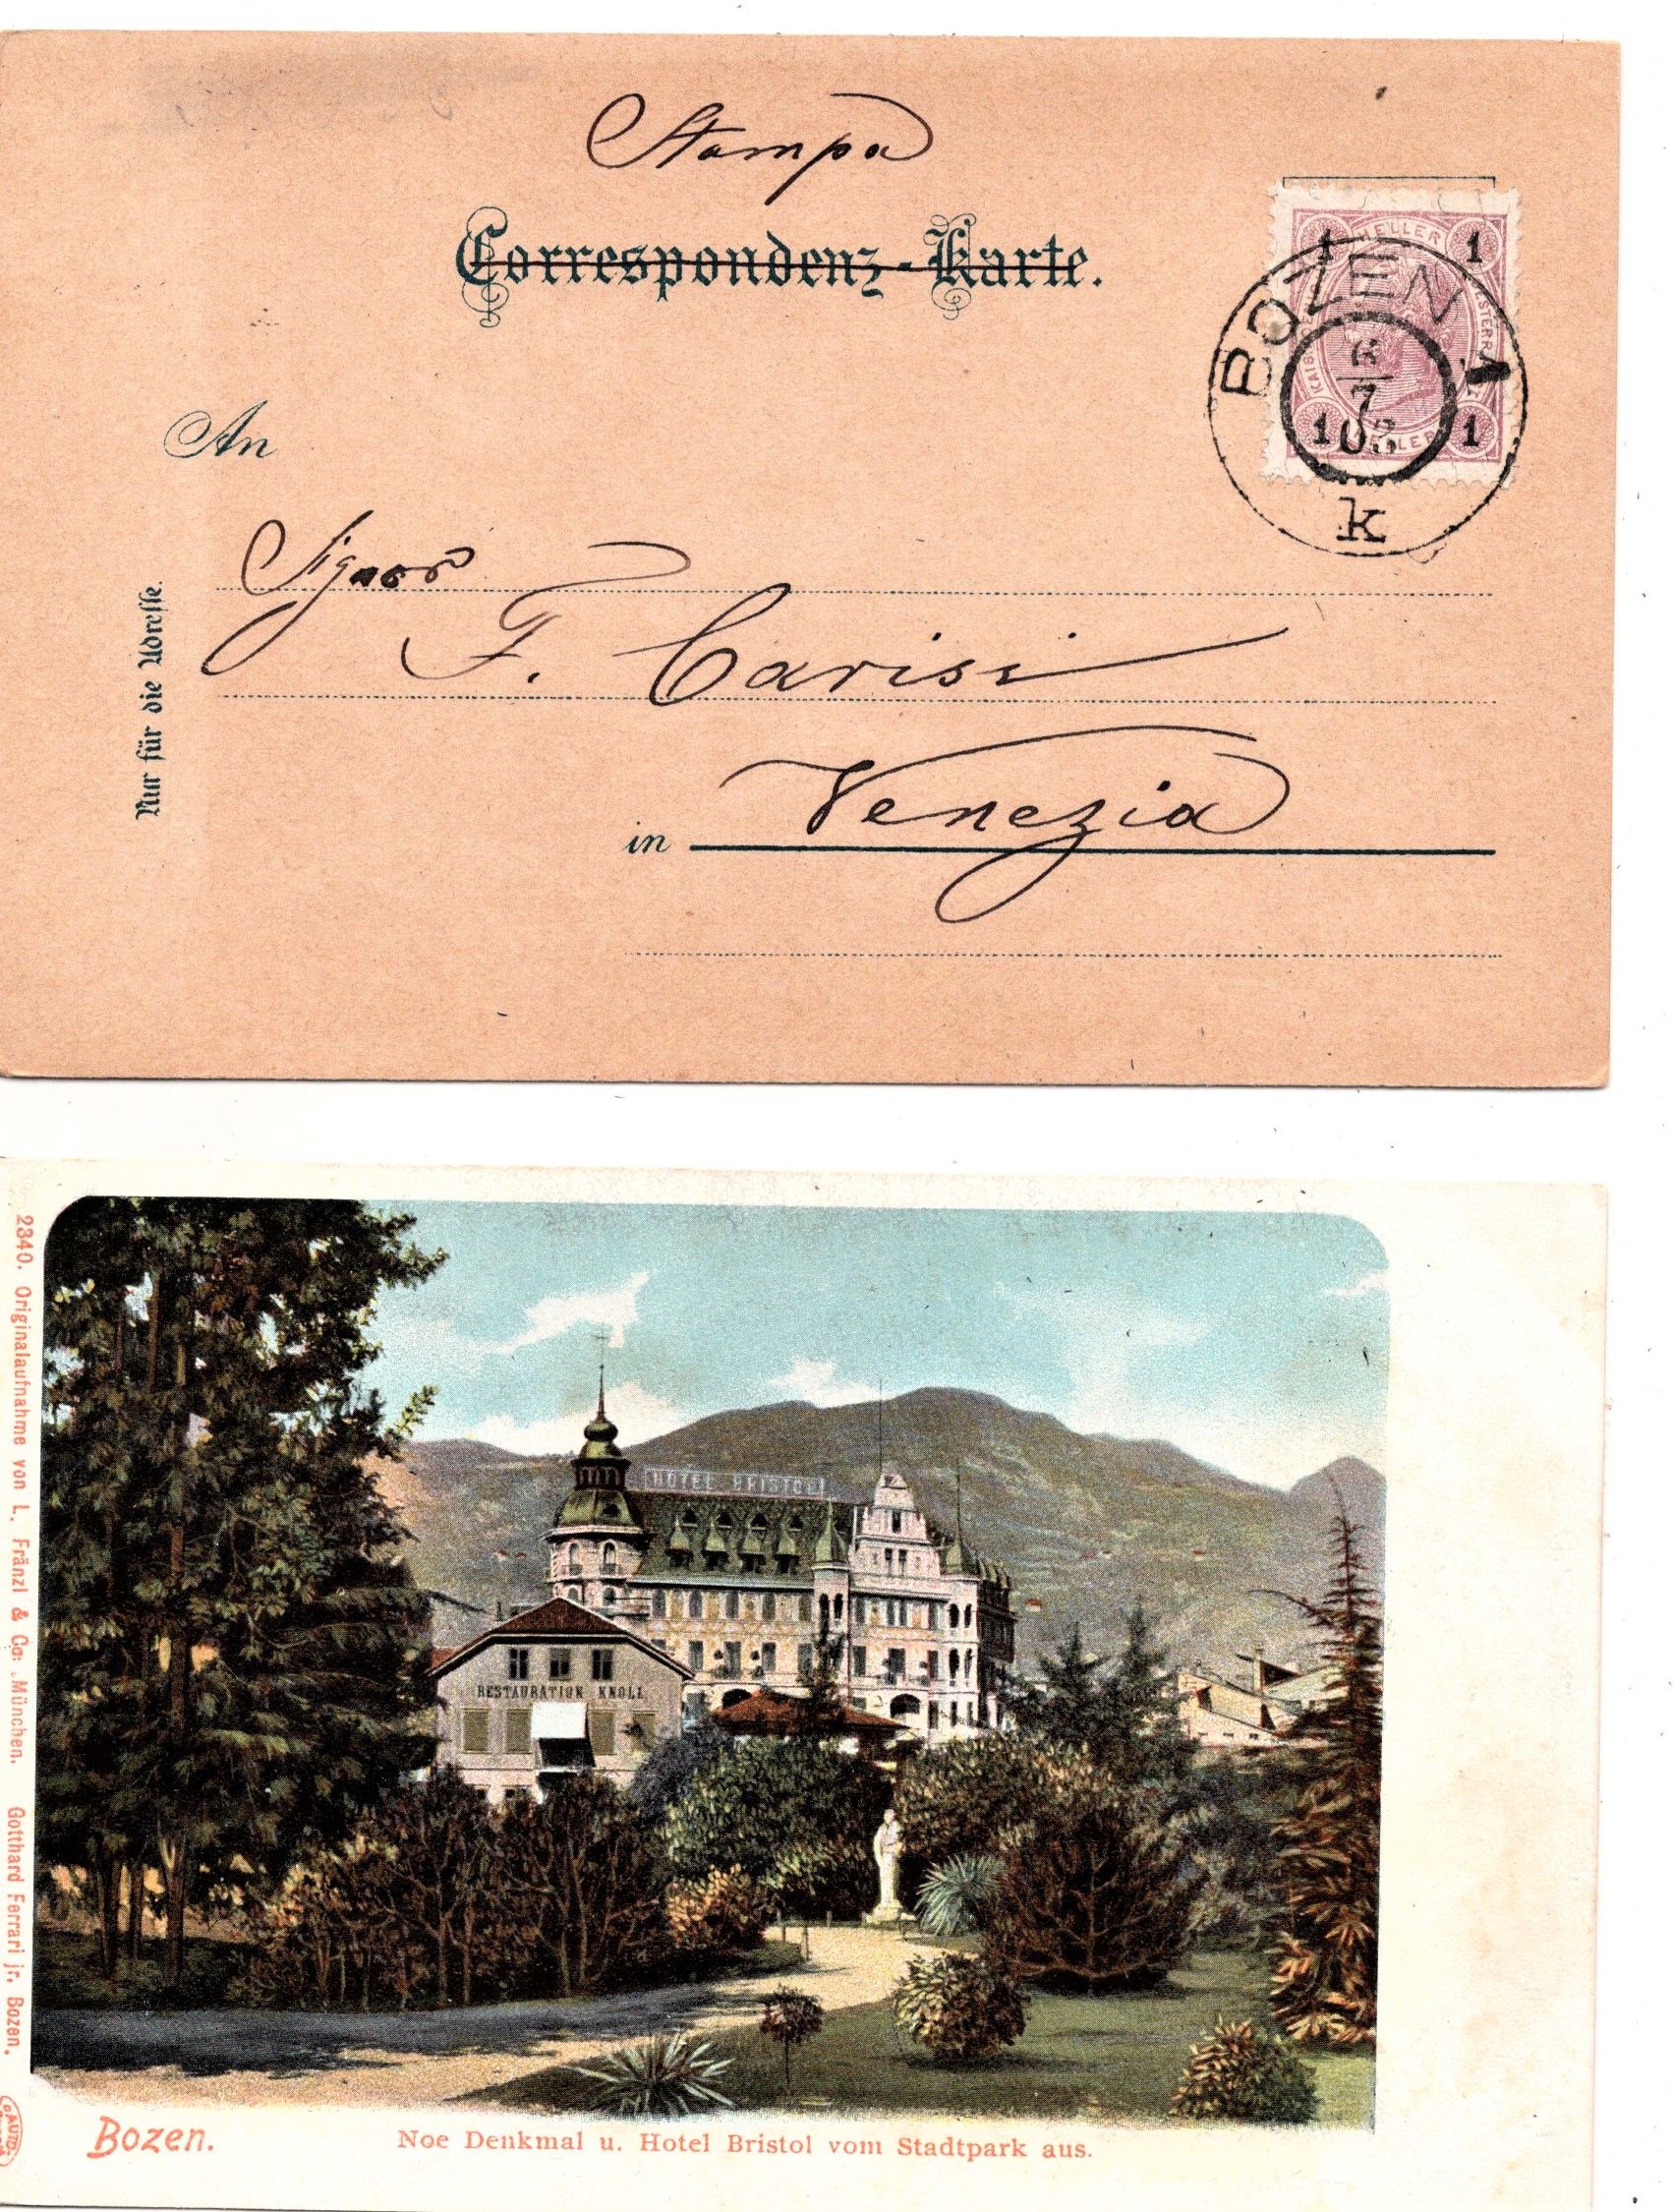 Stampa
Correspondenz-Karte.
1 HELLER 1
BOZEN 1
6
7
03
1 HELLER 1
k
An
Signor
F. Carisi
Venezia
in
Nur für die Adresse.
2340. Originalaufnahme von L. Fränzl & Co. München. Gotthard Ferrari jr. Bozen.
HOTEL BRISTOL
RESTAURATION KNOLL
Bozen.
Noe Denkmal u. Hotel Bristol vom Stadtpark aus.